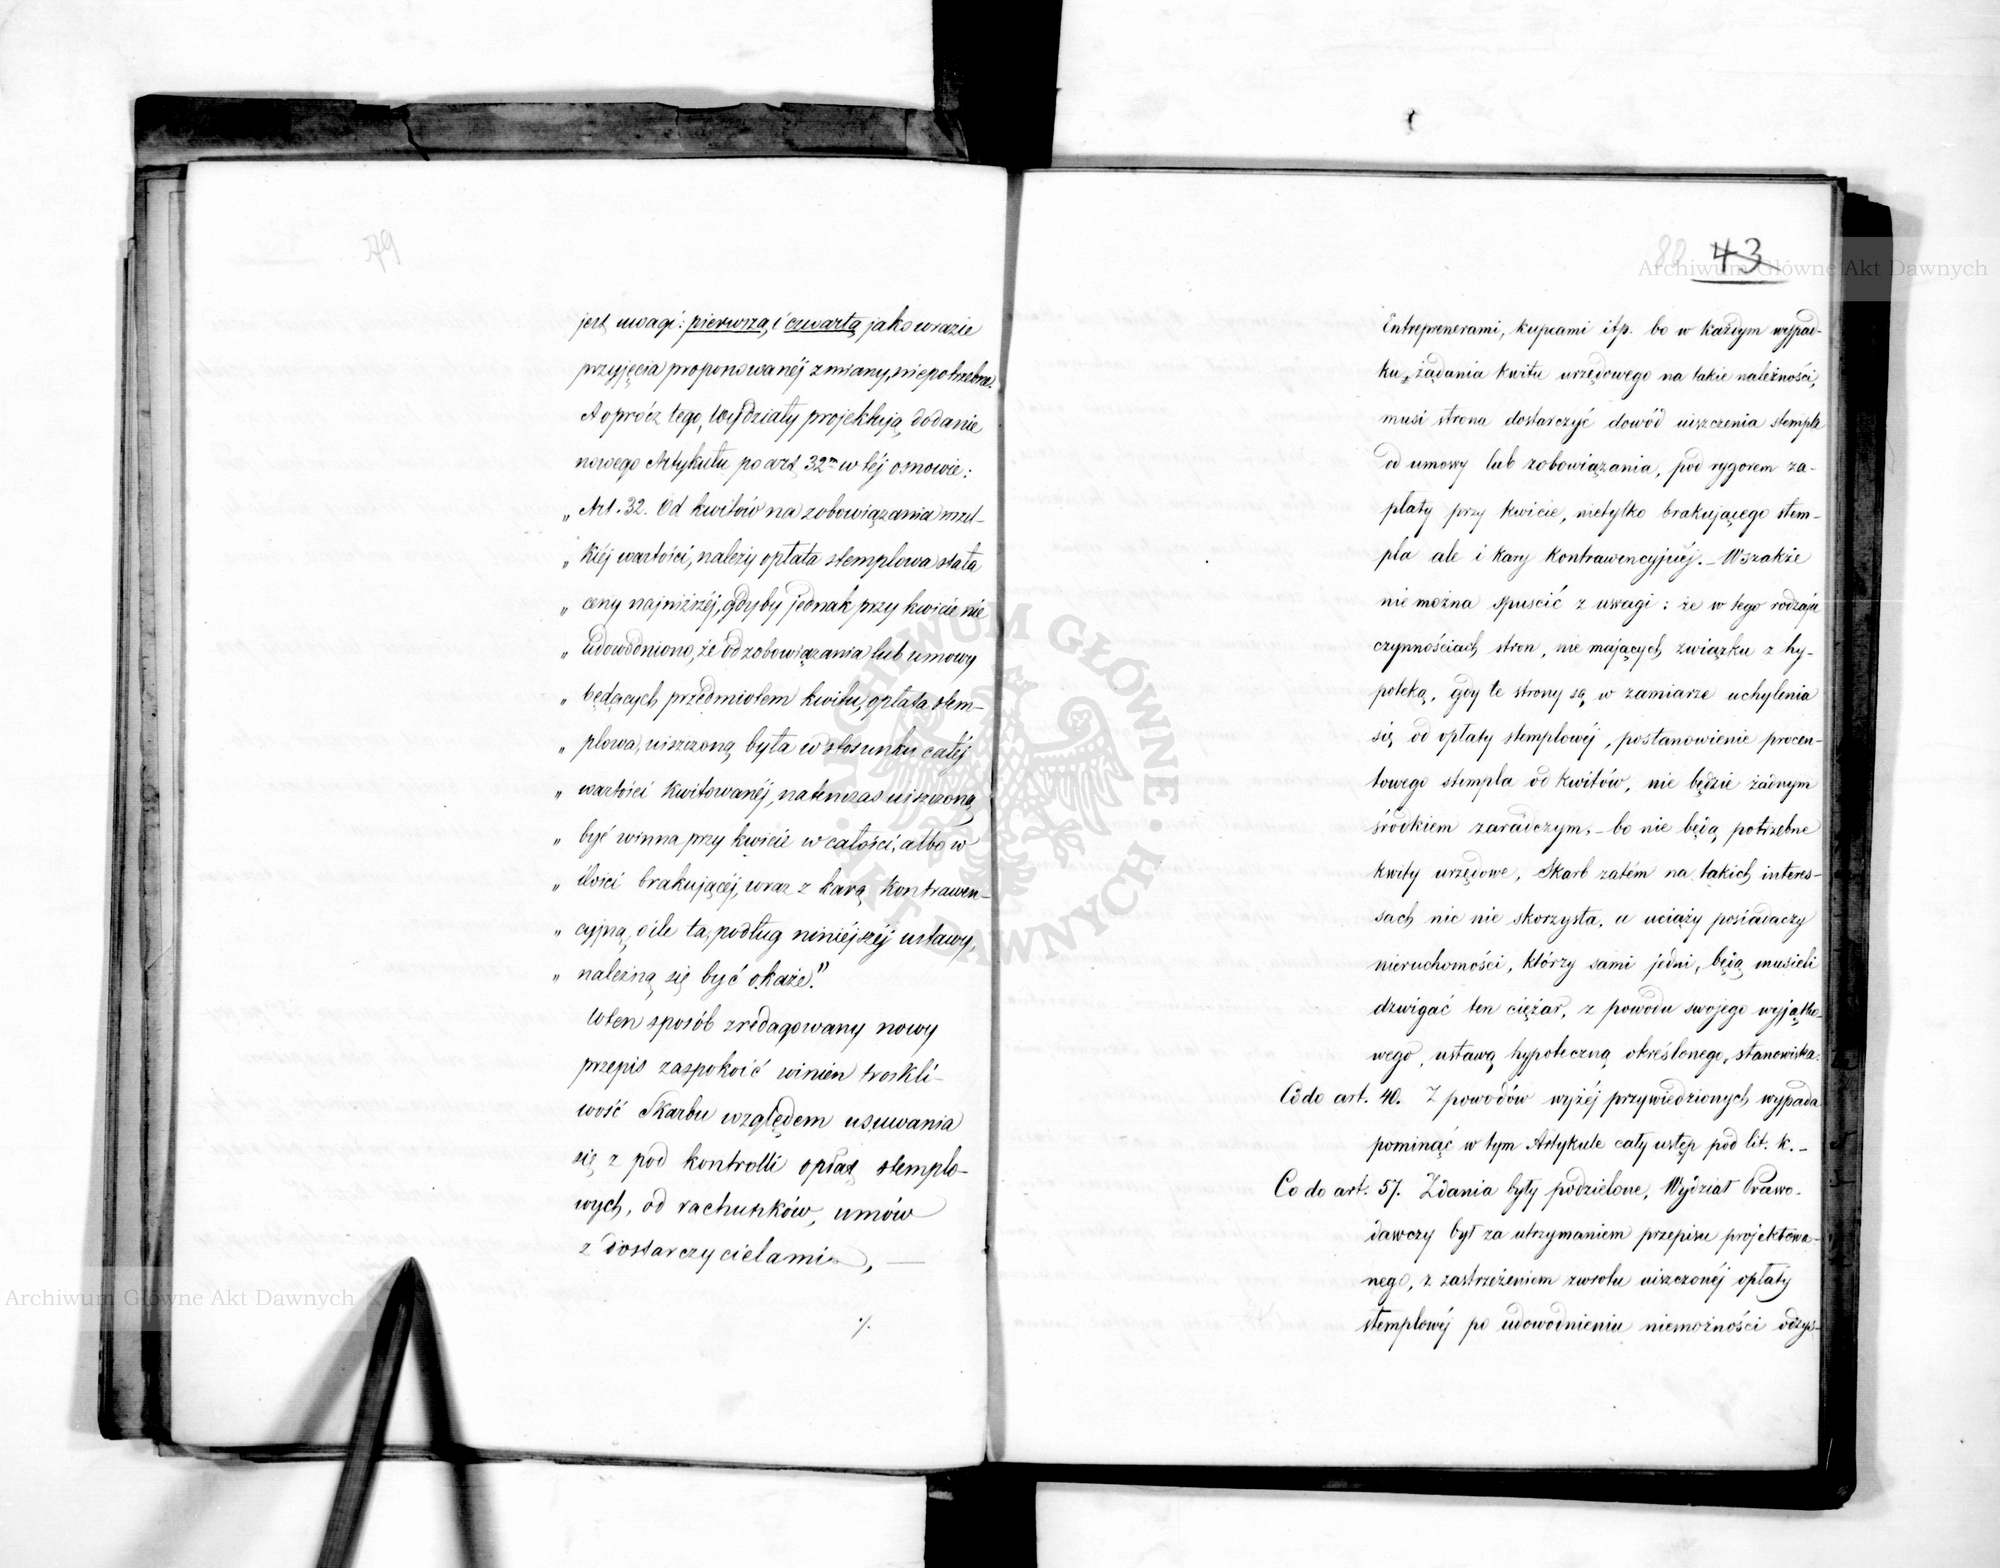 79
jest uwagi: pierwsza, i czwarta, jako w razie
przyjęcia proponowanéj zmiany, niepotrzebne.
A oprócz tego, Wydziały projektują, dodanie
nowego Artykułu po art. 32m w téj osnowie:
„ Art. 32. Od kwitów na zobowiązania wszel-
„ kiéj wartości, należy opłata stemplowa stała
„ ceny najniższéj, gdyby jednak przy kwicie nie
„ udowodniono, że od zobowiązania lub umowy
„ będących przedmiotem kwitu, opłata stem-
„ plowa, uiszczoną była w stosunku całéj
„ wartości kwitowanéj, natenczas uiszczoną
„ być winna przy kwicie w całości, albo w
„ ilości brakującéj, wraz z karą kontrawen-
„ cyjną, o ile ta, podług niniejszéj ustawy,
„ należną się być okaże."
W ten sposób zredagowany nowy
przepis zaspokoić winien troskli-
wość Skarbu względem usuwania
się z pod kontrolli opłat stemplo-
wych, od rachunków, umów
z dostarczycielami, —
·/.
80 43
Entreprenerami, kupcami itp. bo w każdym wypad-
ku, żądania kwitu urzędowego na takie należności,
musi strona dostarczyć dowód uiszczenia stempla
od umowy lub zobowiązania, pod rygorem za-
płaty przy kwicie, nietylko brakującego stem-
pla ale i kary kontrawencyjnéj. – Wszakże
nie można spuscić z uwagi: że w tego rodzaju
czynnościach stron, nie mających związku z hy-
poteką, gdy te strony są w zamiarze uchylenia
się od opłaty stemplowéj, postanowienie procen-
towego stempla od kwitów, nie będzie żadnym
środkiem zaradczym, – bo nie będą potrzebne
kwity urzędowe, Skarb zatém na takich interes-
sach nic nie skorzysta, a uciąży posiadaczy
nieruchomości, którzy sami jedni, będą musieli
dzwigać ten ciężar, z powodu swojego wyjątko-
wego, ustawą hypoteczną określonego, stanowiska.
Co do art. 40. Z powodów wyżéj przywiedzionych wypada
pominąć w tym Artykule cały ustęp pod lit. k. –
Co do art. 57. Zdania były podzielone, Wydział Prawo-
dawczy był za utrzymaniem przepisu projektowa-
nego, z zastrzeżeniem zwrotu uiszczonéj opłaty
stemplowéj po udowodnieniu niemożności odzys-
Archiwum Główne Akt Dawnych
Archiwum Główne Akt Dawnych
ARCHIWUM GŁÓWNE · AKT DAWNYCH ·